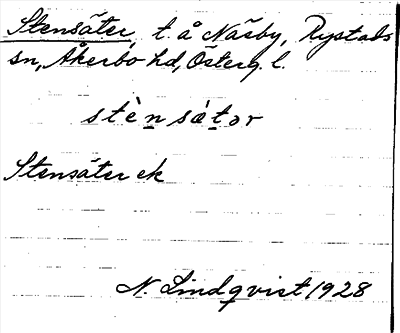 Stensäter, t. å Näsby, Rystads
sn, Åkerbo hd, Österg. l.
stènsátor
Stensäter ek
N. Lindqvist 1928